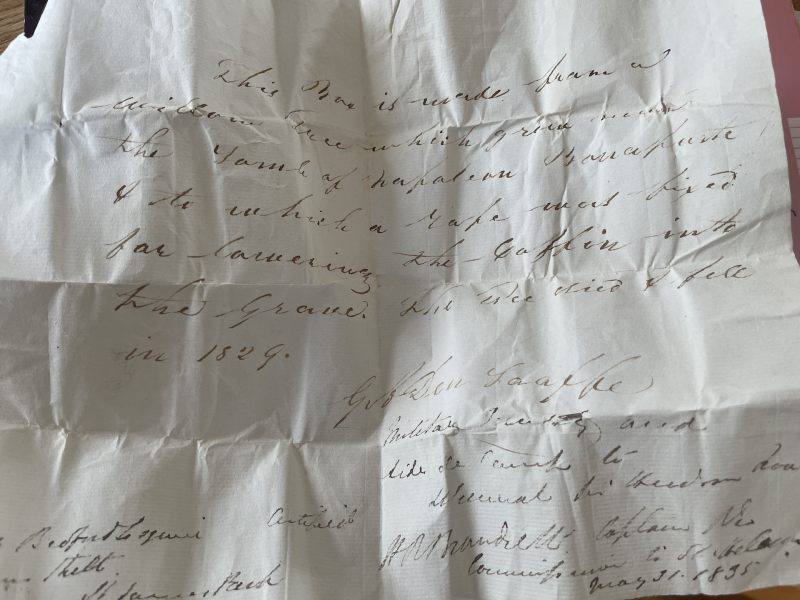 This Box is made from a
Willow Tree which grew near
the Tomb of Napoleon Bonaparte
& to which a rope was fixed
for lowering the Coffin into
the Grave. The Tree died & fell
in 1829.
G
Military Secretary and
Aide de Camp to
General Sir Hudson Low
Bedford Esquire Certified
Captain
St James Park
Commission to St Helena
May 31. 1835